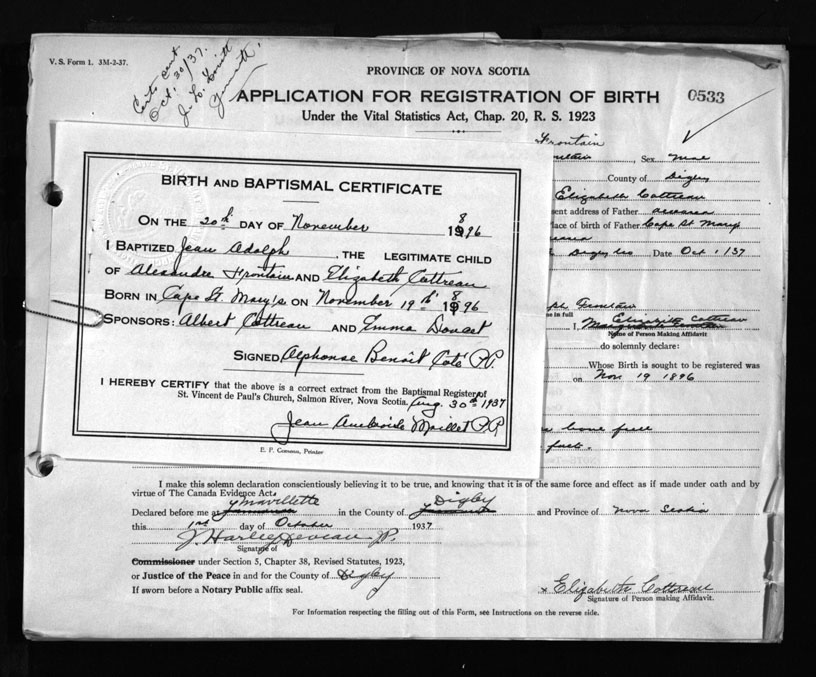 V. S. Form 1. 3M-2-37.
Certs sent
Oct. 30/37.
J. L.
PROVINCE OF NOVA SCOTIA
APPLICATION FOR REGISTRATION OF BIRTH
0533
Under the Vital Statistics Act, Chap. 20, R. S. 1923
Frontain
Sex Male
County of Digby
Elizabeth Cottreau
ent address of Father
lace of birth of Father Cape St Marys
Digby Co Date Oct. 1/37
BIRTH AND BAPTISMAL CERTIFICATE
ON THE 20th DAY OF November 1896
I BAPTIZED Jean Adolph, THE LEGITIMATE CHILD
OF Alexandre Frontain AND Elizabeth Cottreau
BORN IN Cape St. Mary's ON November 19th 1896
SPONSORS: Albert Cottreau AND Emma Doucet
SIGNED Alphonse Benoit Coté P.P.
I HEREBY CERTIFY that the above is a correct extract from the Baptismal Register of
St. Vincent de Paul's Church, Salmon River, Nova Scotia. Aug. 30th 1937
Jean Ambroise Maillet P.P.
E. P. Comeau, Printer
e in full
Elizabeth Cottreau
I,
Name of Person Making Affidavit
do solemnly declare:
Whose Birth is sought to be registered was
on Nov. 19 1896
fact.
I make this solemn declaration conscientiously believing it to be true, and knowing that it is of the same force and effect as if made under oath and by
virtue of The Canada Evidence Act.
Declared before me at Mavillette in the County of Digby and Province of Nova Scotia
this 1st day of October 1937
J. Harley Deveau J.P.
Signature of
Commissioner under Section 5, Chapter 38, Revised Statutes, 1923,
or Justice of the Peace in and for the County of Digby
If sworn before a Notary Public affix seal.
x Elizabeth Cottreau
Signature of Person making Affidavit.
For Information respecting the filling out of this Form, see Instructions on the reverse side.